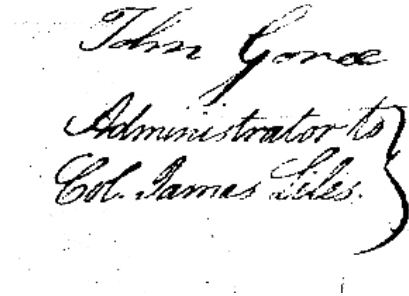 John Goree
Administrator to
Col. James Liles.